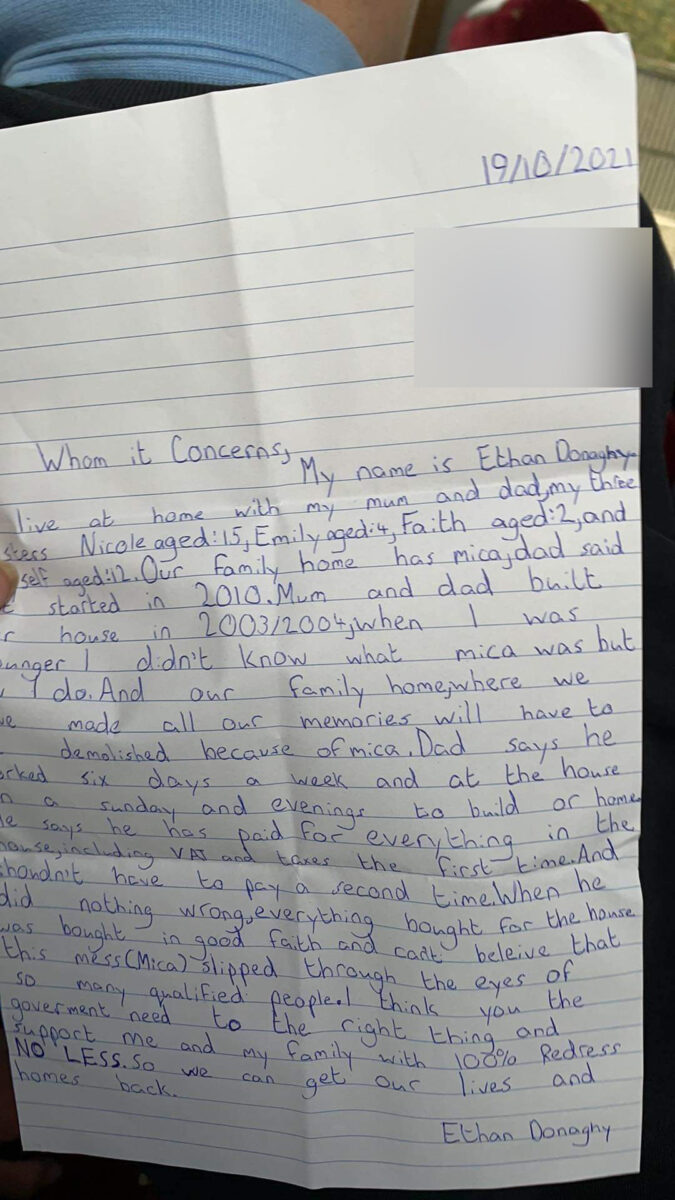 19/10/2021
Whom it Concerns,
My name is Ethan Donaghy.
live at home with my mum and dad,my three
sters Nicole aged:15,Emily aged:4,Faith aged:2,and
self aged:12.Our family home has mica,dad said
started in 2010.Mum and dad built
r house in 2003/2004,when I was
unger I didn't know what mica was but
I do.And our family home,where we
ve made all our memories will have to
demolished because of mica.Dad says he
orked six days a week and at the house
n a sunday and evenings to build or home.
He says he has paid for everything in the
house,including VAT and taxes the first time.And
houdn't have to pay a second time.When he
did nothing wrong,everything bought for the house
was bought in good faith and can't beleive that
this mess(Mica) slipped through the eyes of
so many qualified people.I think you the
goverment need to the right thing and
support me and my family with 100% Redress
NO LESS.So we can get our lives and
homes back.
Ethan Donaghy